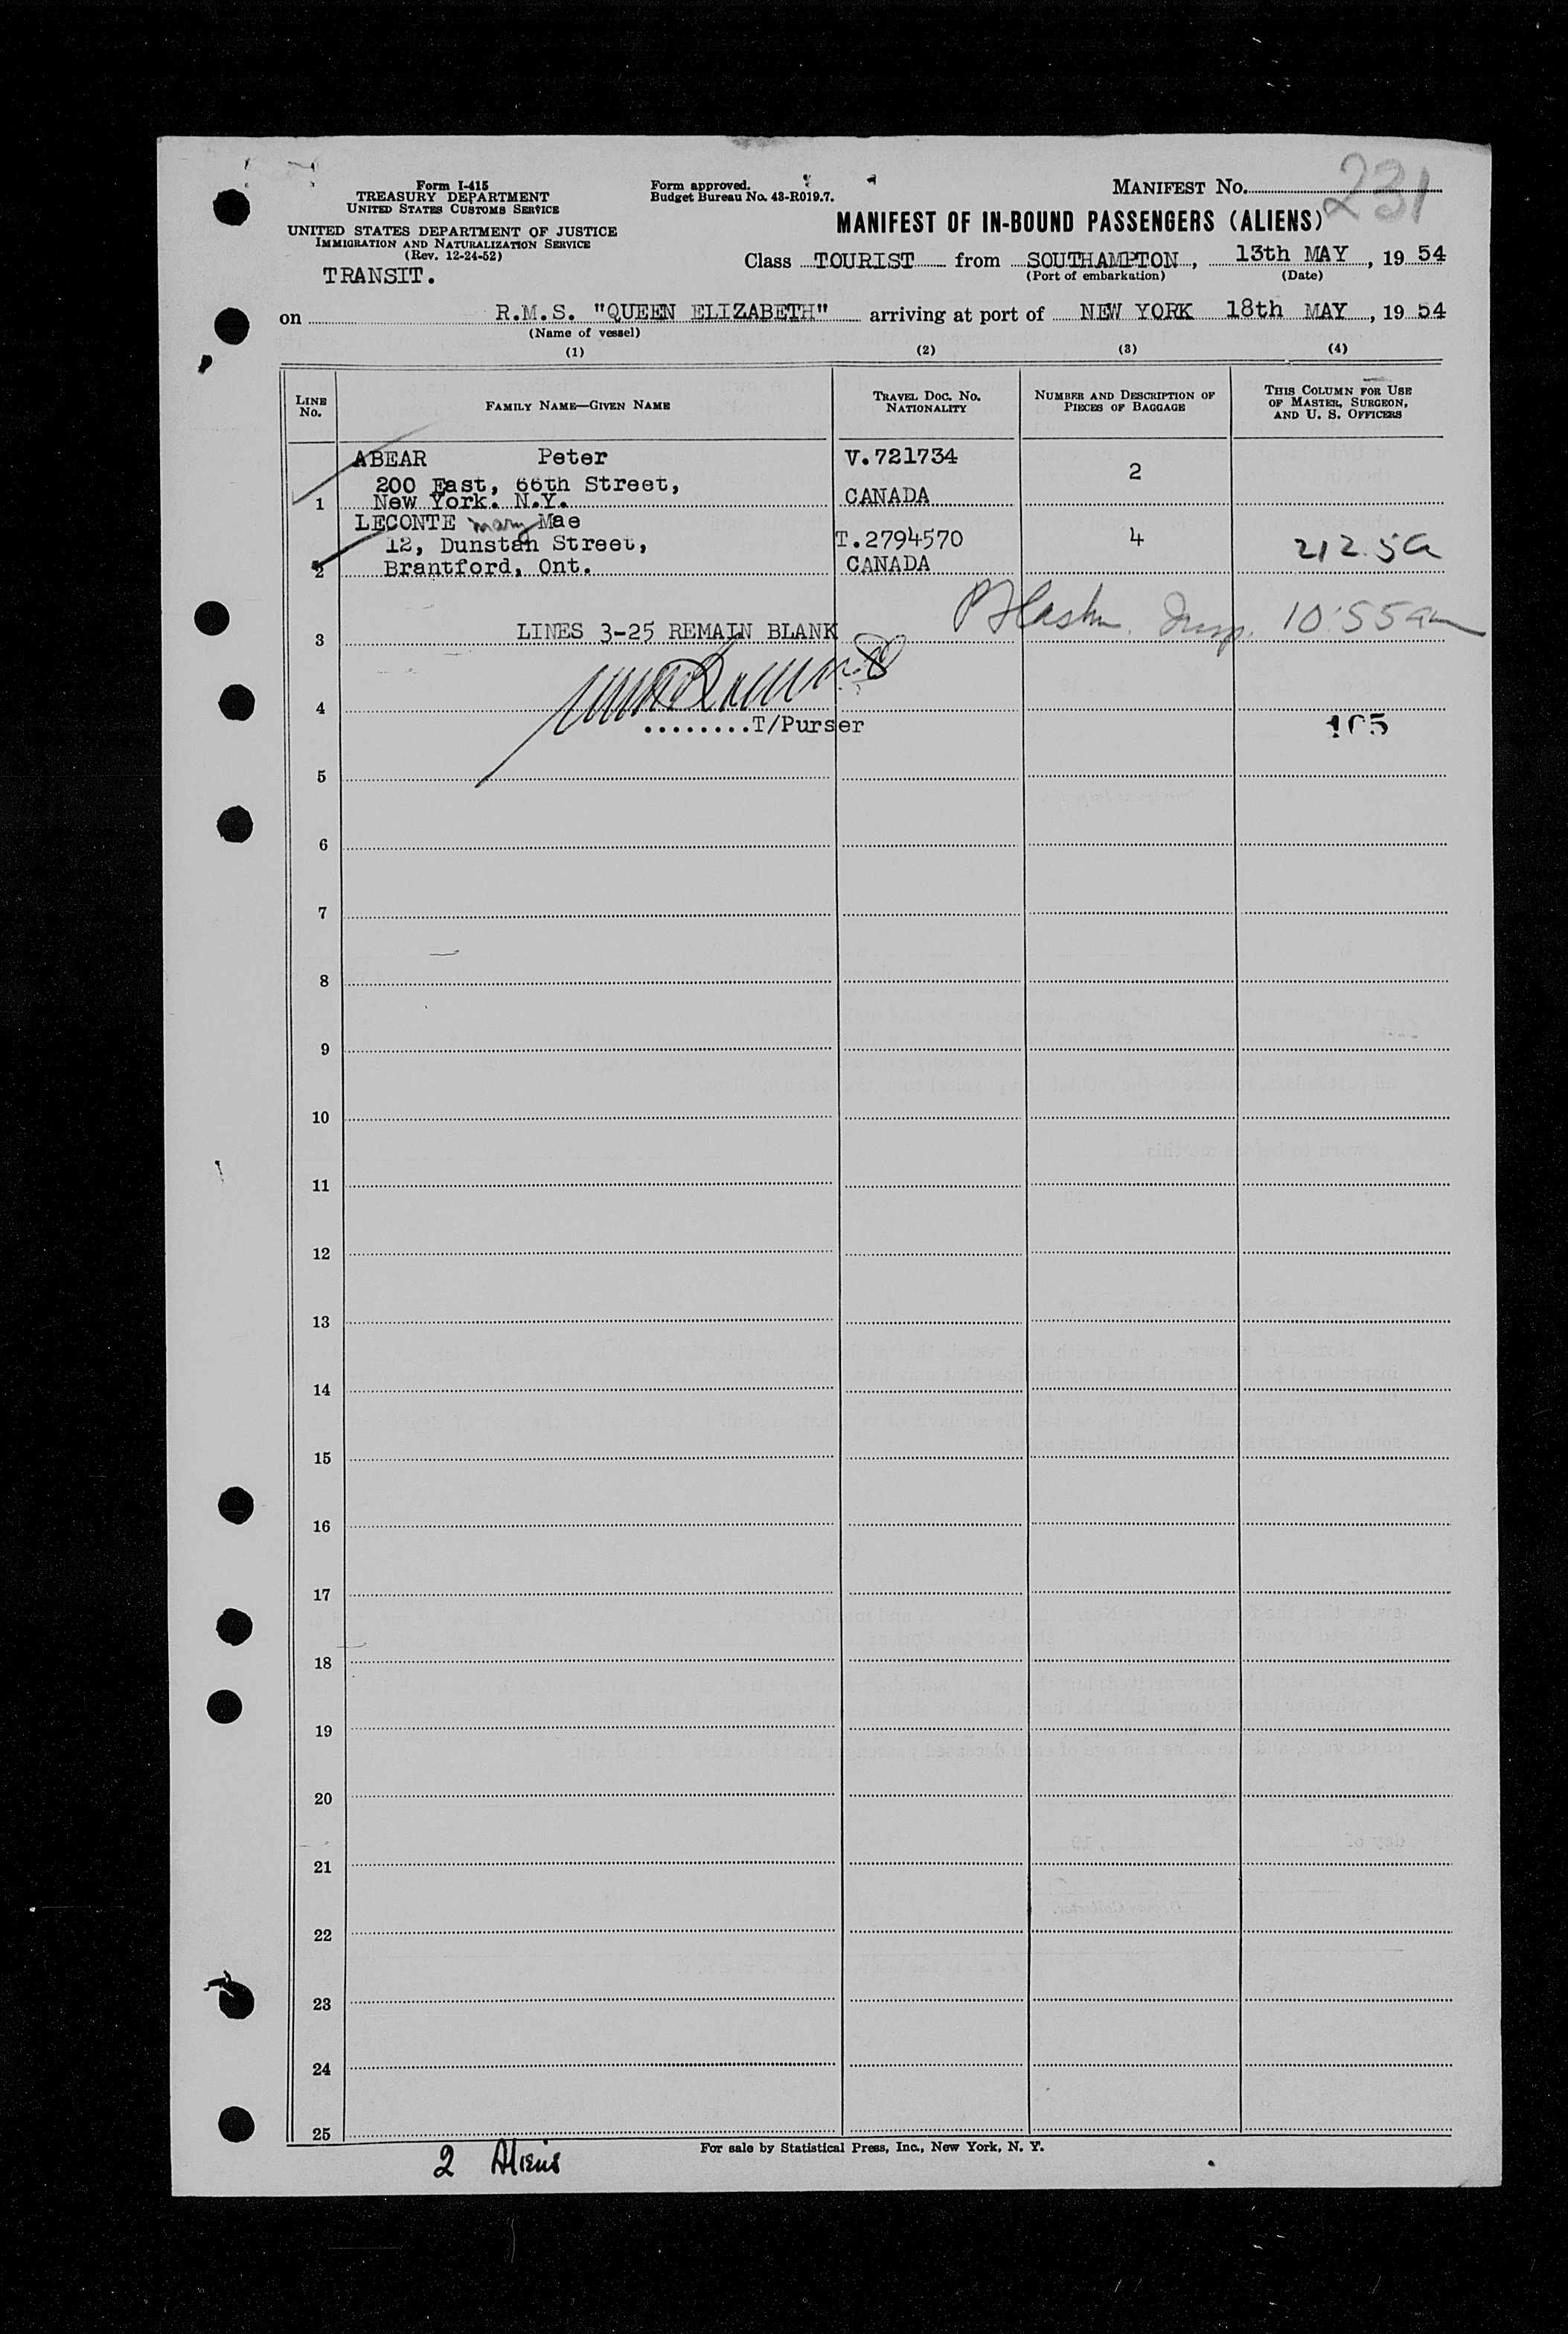 231
Form I-415
TREASURY DEPARTMENT
UNITED STATES CUSTOMS SERVICE
UNITED STATES DEPARTMENT OF JUSTICE
IMMIGRATION AND NATURALIZATION SERVICE
(Rev. 12-24-52)
TRANSIT.
Form approved.
Budget Bureau No. 43-R019.7.
MANIFEST NO.
MANIFEST OF IN-BOUND PASSENGERS (ALIENS)
Class TOURIST from SOUTHAMPTON, 13th MAY, 19 54
(Port of embarkation) (Date)
on R.M.S. "QUEEN ELIZABETH" arriving at port of NEW YORK 18th MAY, 19 54
(Name of vessel)
(1) (2) (3) (4)
LINE NO. FAMILY NAME—GIVEN NAME TRAVEL DOC. NO. NATIONALITY NUMBER AND DESCRIPTION OF PIECES OF BAGGAGE THIS COLUMN FOR USE OF MASTER, SURGEON, AND U. S. OFFICERS
ABEAR Peter V.721734 2
200 East, 66th Street,
1 New York. N.Y. CANADA
LECONTE Mary Mae
12, Dunstan Street, T.2794570 4 212.5a
2 Brantford, Ont. CANADA
10:55am
3 LINES 3-25 REMAIN BLANK
4
........T/Purser 105
5
6
7
8
9
10
11
12
13
14
15
16
17
18
19
20
21
22
23
24
25
For sale by Statistical Press, Inc., New York, N. Y.
2 Aliens